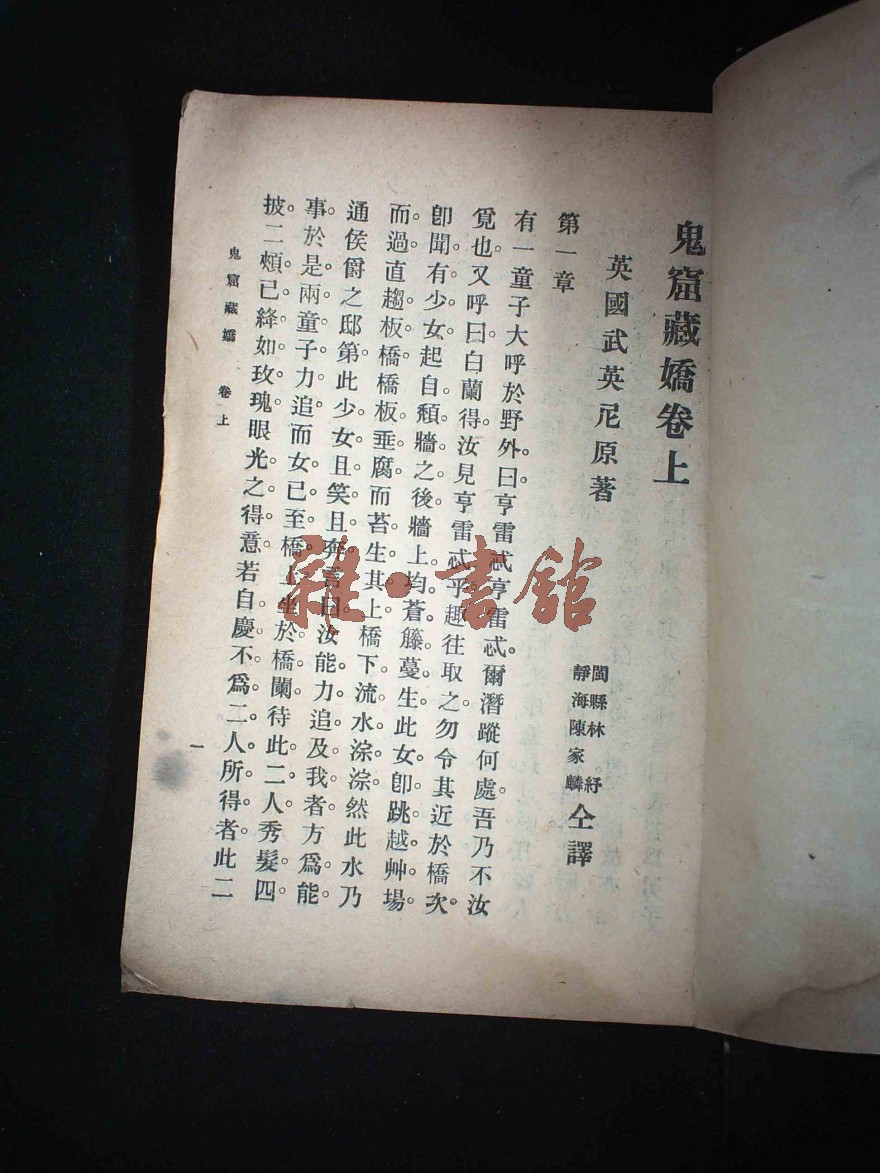 鬼窟藏嬌卷上
英國武英尼原著
閩縣林紓
靜海陳家麟
仝譯
第一章
有一童子大呼於野外。曰亨雷忒亨雷忒。爾潛蹤何處。吾乃不汝
覓也。又呼曰白蘭得。汝見亨雷忒乎。趣往取之。勿令其近於橋次。
卽聞有少女起自頹牆之後。牆上均蒼籐蔓生。此女卽跳越艸場
而過。直趨板橋。橋板垂腐而苔生其上。橋下流水淙淙然。此水乃
通侯爵之邸第。此少女且笑且奔。言曰。汝能力追及我者。方爲能
事。於是兩童子力追。而女已至橋上。坐於橋闌。待此二人。秀髮四
披。二頰已絳如玫瑰。眼光之得意。若自慶不爲二人所得者。此二
鬼窟藏嬌 卷上
一
雜·書館